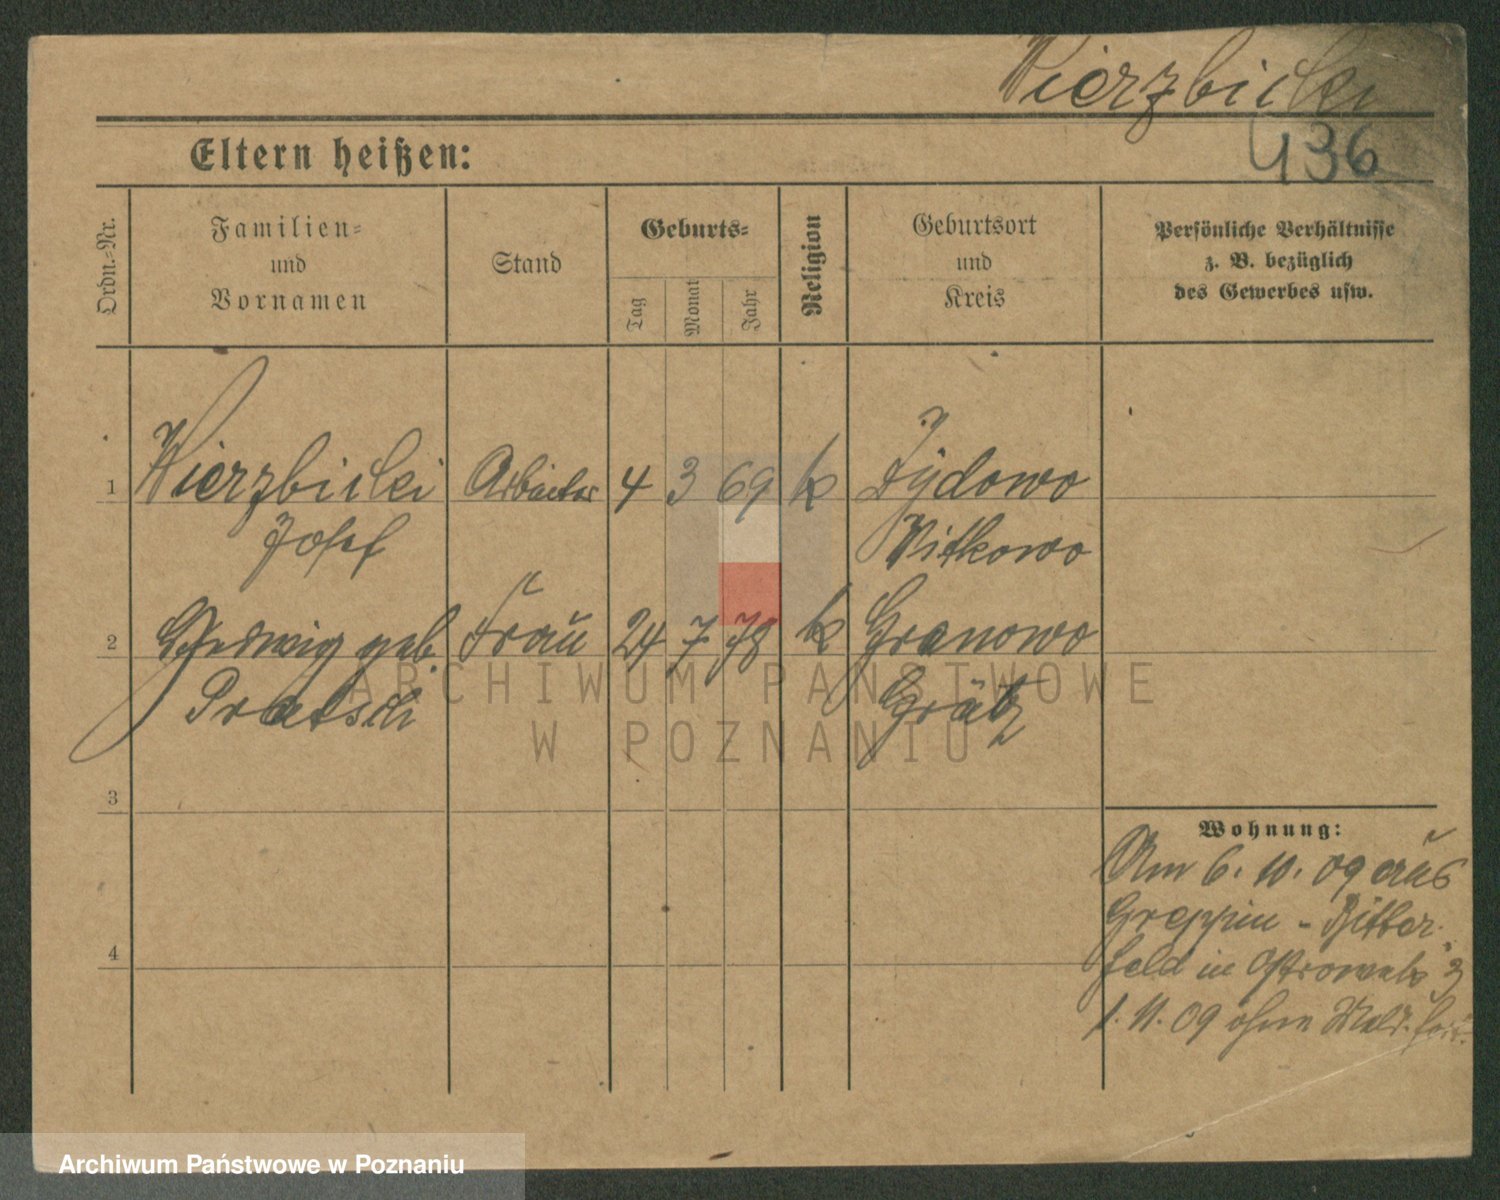 Wierzbicki
436
Eltern heißen:
Ordn.-Nr.
Familien-
und
Vornamen
Stand
Geburts-
Tag
Monat
Jahr
Religion
Geburtsort
und
Kreis
Persönliche Verhältnisse
z. B. bezüglich
des Gewerbes usw.
1 Wierzbicki Arbeiter 4 3 69 k Żydowo
Josef Witkowo
2 Hedwig geb. Frau 24 7 78 k Granowo
Grätz
3
4
Wohnung:
Am 6. 10. 09 aus
Greppin - Bitter-
feld in 3
1. 11. 09 ohne Meld. fort.
ARCHIWUM PAŃSTWOWE
W POZNANIU
Archiwum Państwowe w Poznaniu